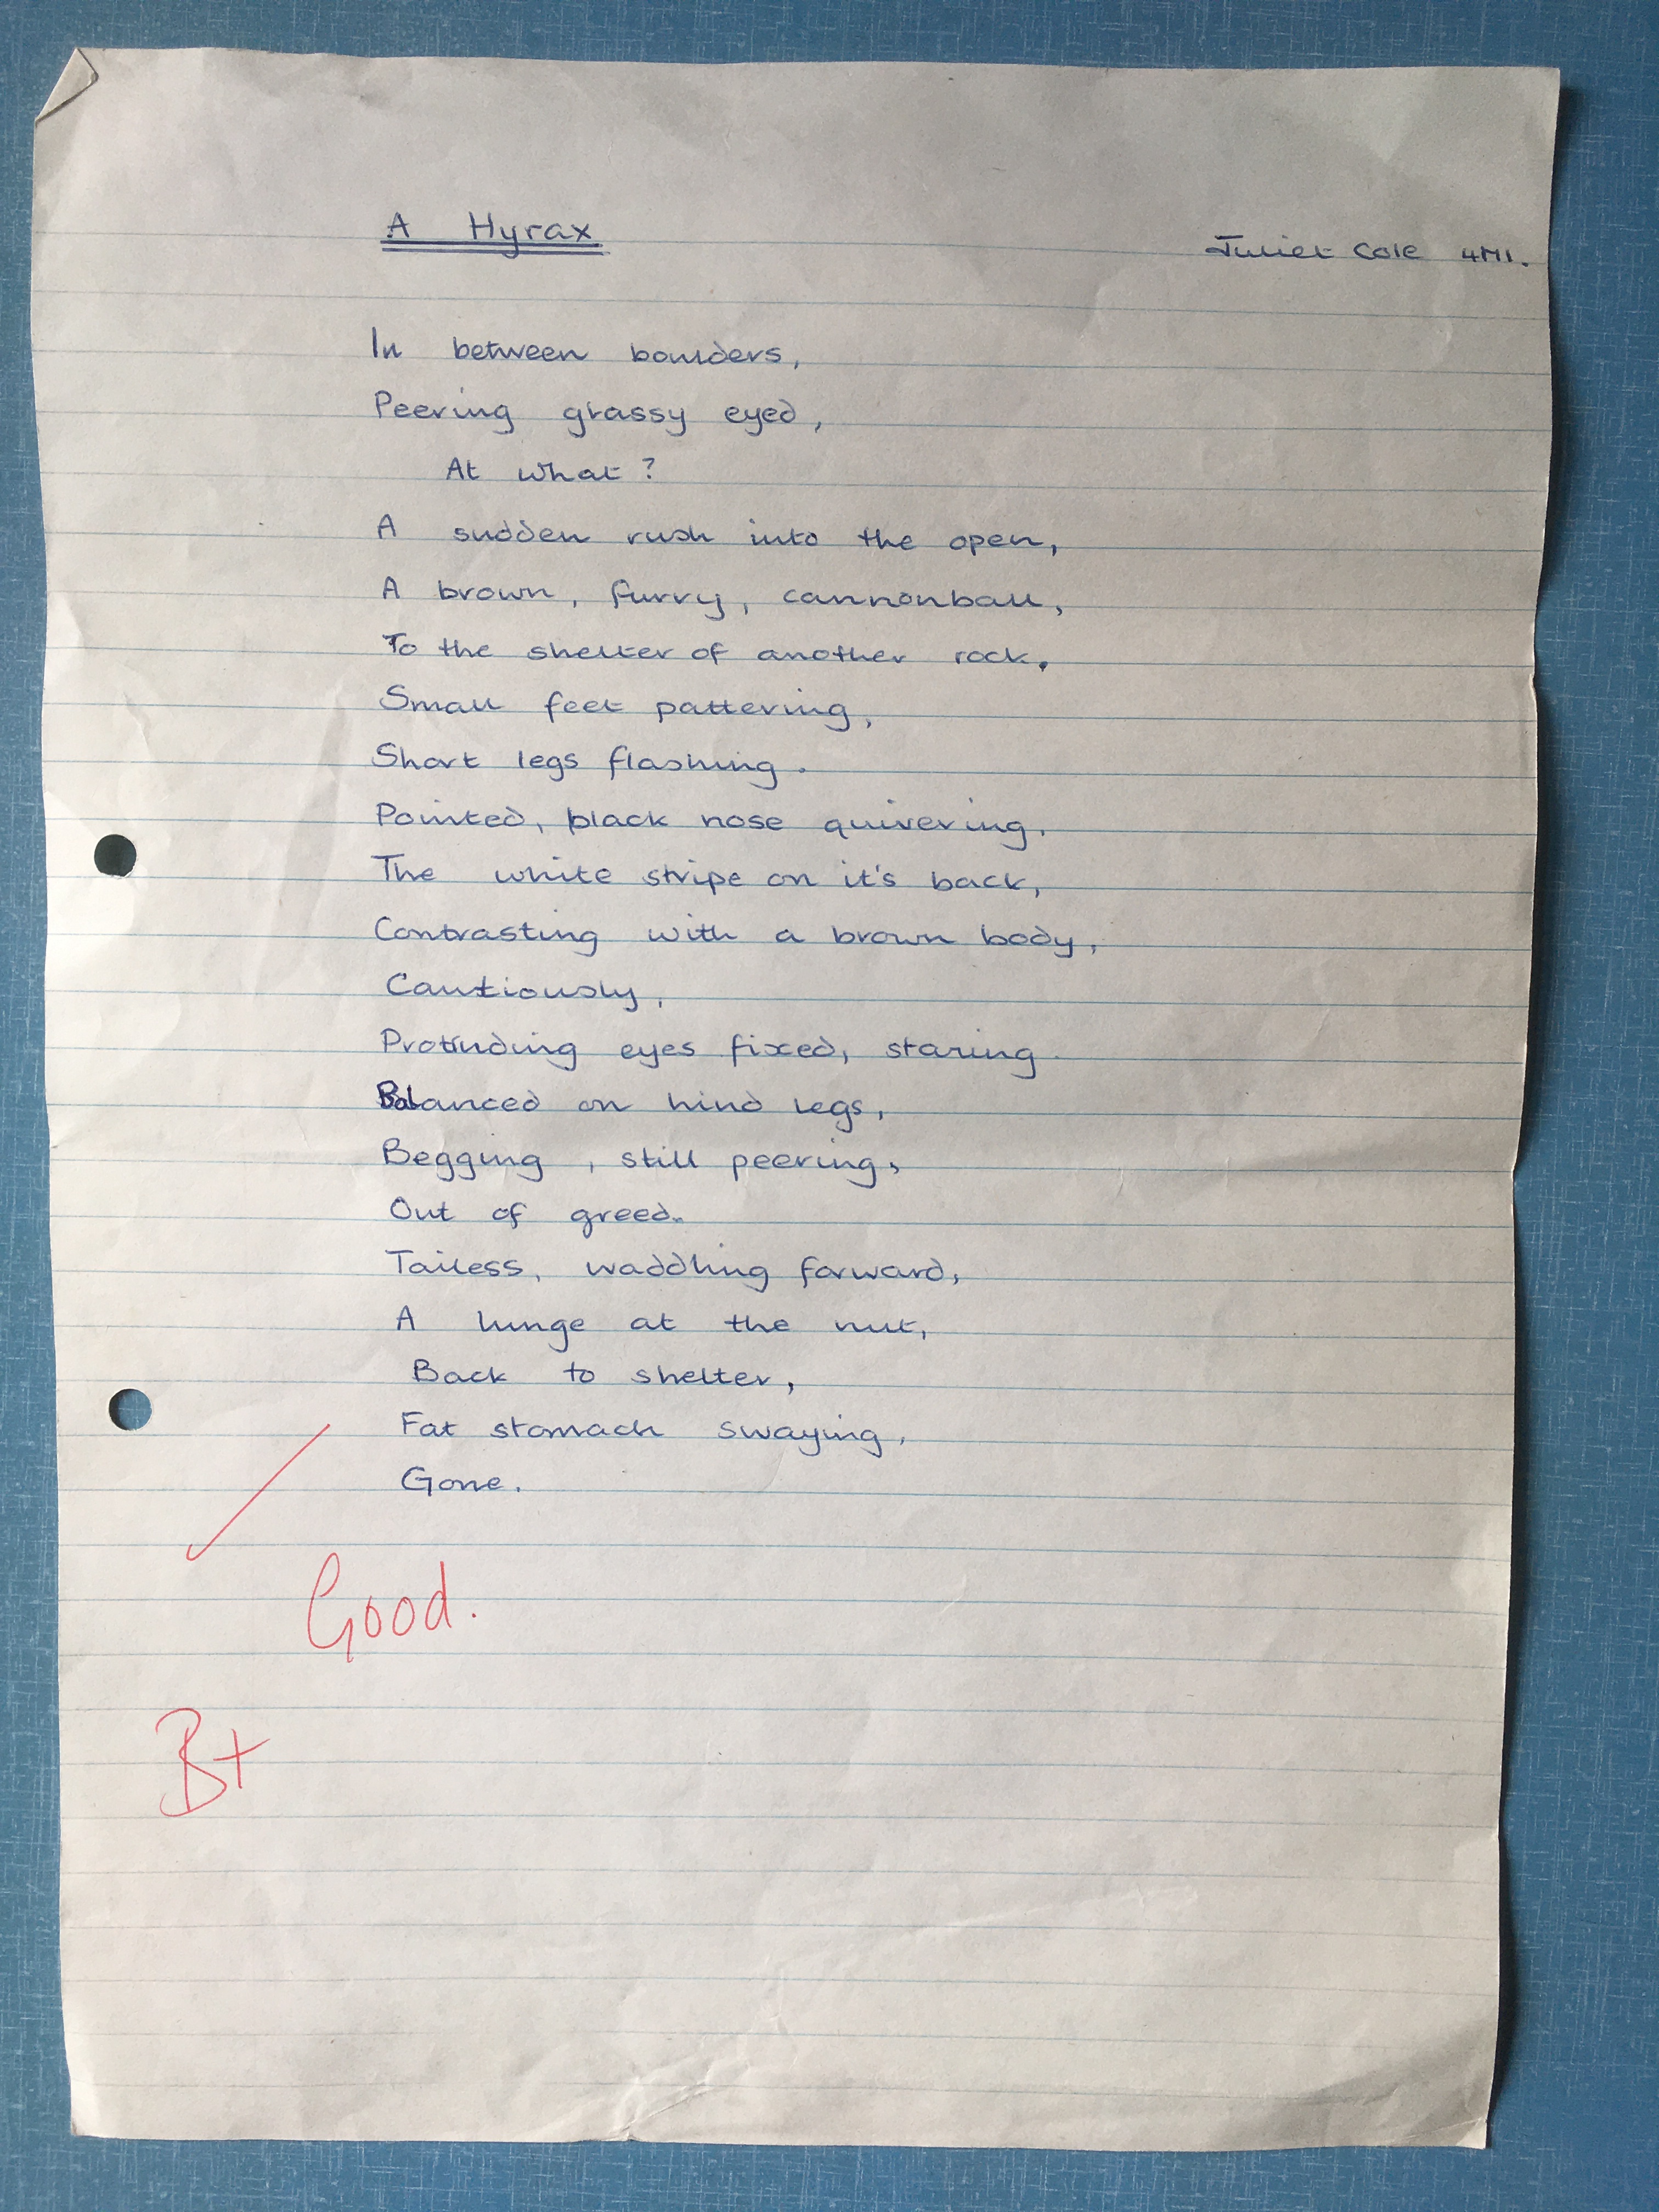 A Hyrax
Juliet Cole 4M1.
In between boulders,
Peering glassy eyed,
At what?
A sudden rush into the open,
A brown, furry, cannonball,
To the shelter of another rock.
Small feet pattering,
Short legs flashing.
Pointed, black nose quivering.
The white stripe on it's back,
Contrasting with a brown body,
Cautiously,
Protruding eyes fixed, staring.
Balanced on hind legs,
Begging, still peering,
Out of greed.
Tailess, waddling forward,
A lunge at the nut,
Back to shelter,
Fat stomach swaying,
Gone.
Good.
B+